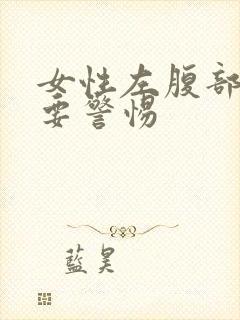 女性左腹部
要警惕
藍昊